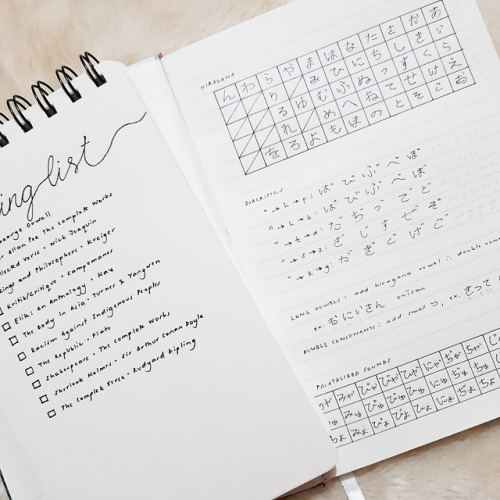 ing list
George Orwell
r Allan Poe The Complete Works
llected Verse • Nick Joaquin
kings and Philosophers • Kreiger
Kritik/Critique • Campomanes
Elit: An Anthology • Hax
The Body in Asia • Turner & Yangwen
Racism Against Indigenous Peoples
The Republic • Plato
Shakespeare • The Complete Works
Sherlock Holmes • Sir Arthur Conan Doyle
The Complet Verse • Rudyard Kipling
HIRAGANA
ん わ ら や ま は な た さ か あ
り み ひ に ち し き い
る ゆ む ふ ぬ つ す く う
れ め へ ね て せ け え
を ろ よ も ほ の と そ こ お
DIACRITICS
→ h → p: ぱ ぴ ぷ ぺ ぽ
" → h → b: ば び ぶ べ ぼ
" → t → d: だ ぢ づ で ど
" → s → z: ざ じ ず ぜ ぞ
" → k → g: が ぎ ぐ げ ご
LONG VOWELS: add hiragana vowel ∴ double
ex. おにいさん oniisan
DOUBLE CONSONANTS: add small っ, ex. きって
PALATALIZED SOUNDS
みゃ ぴゃ びゃ ひゃ にゃ ぢゃ ちゃ じゃ
みゅ ぴゅ びゅ ひゅ にゅ ぢゅ ちゅ
ょ みょ ぴょ びょ ひょ にょ ぢょ ちょ